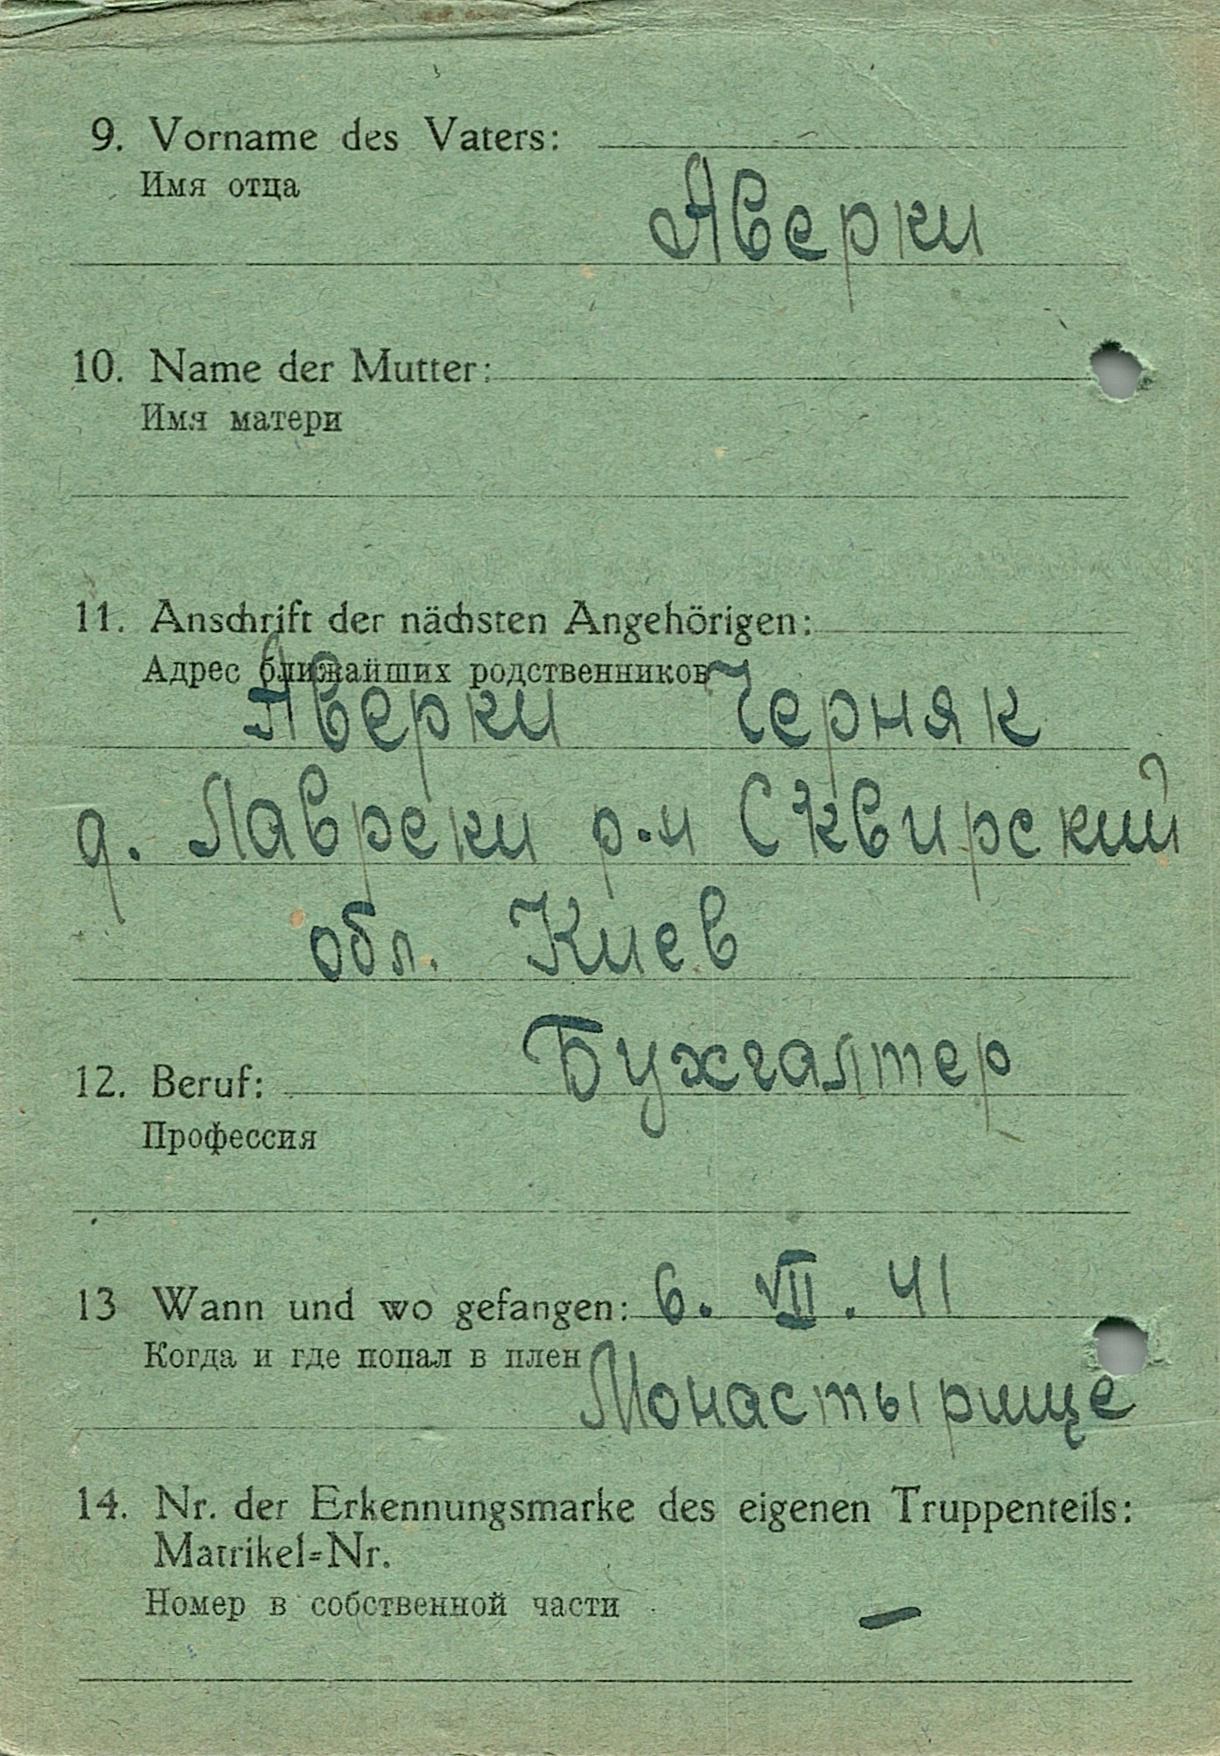 9. Vorname des Vaters:
Имя отца
Аверки
10. Name der Mutter:
Имя матери
11. Anschrift der nächsten Angehörigen:
Адрес ближайших родственников
Аверки Черняк
д. Лаврски р-н Сквирский
обл. Киев
Бухгалтер
12. Beruf:
Профессия
13 Wann und wo gefangen: 6. VII. 41
Когда и где попал в плен
Монастырище
14. Nr. der Erkennungsmarke des eigenen Truppenteils:
Matrikel=Nr.
Номер в собственной части
—